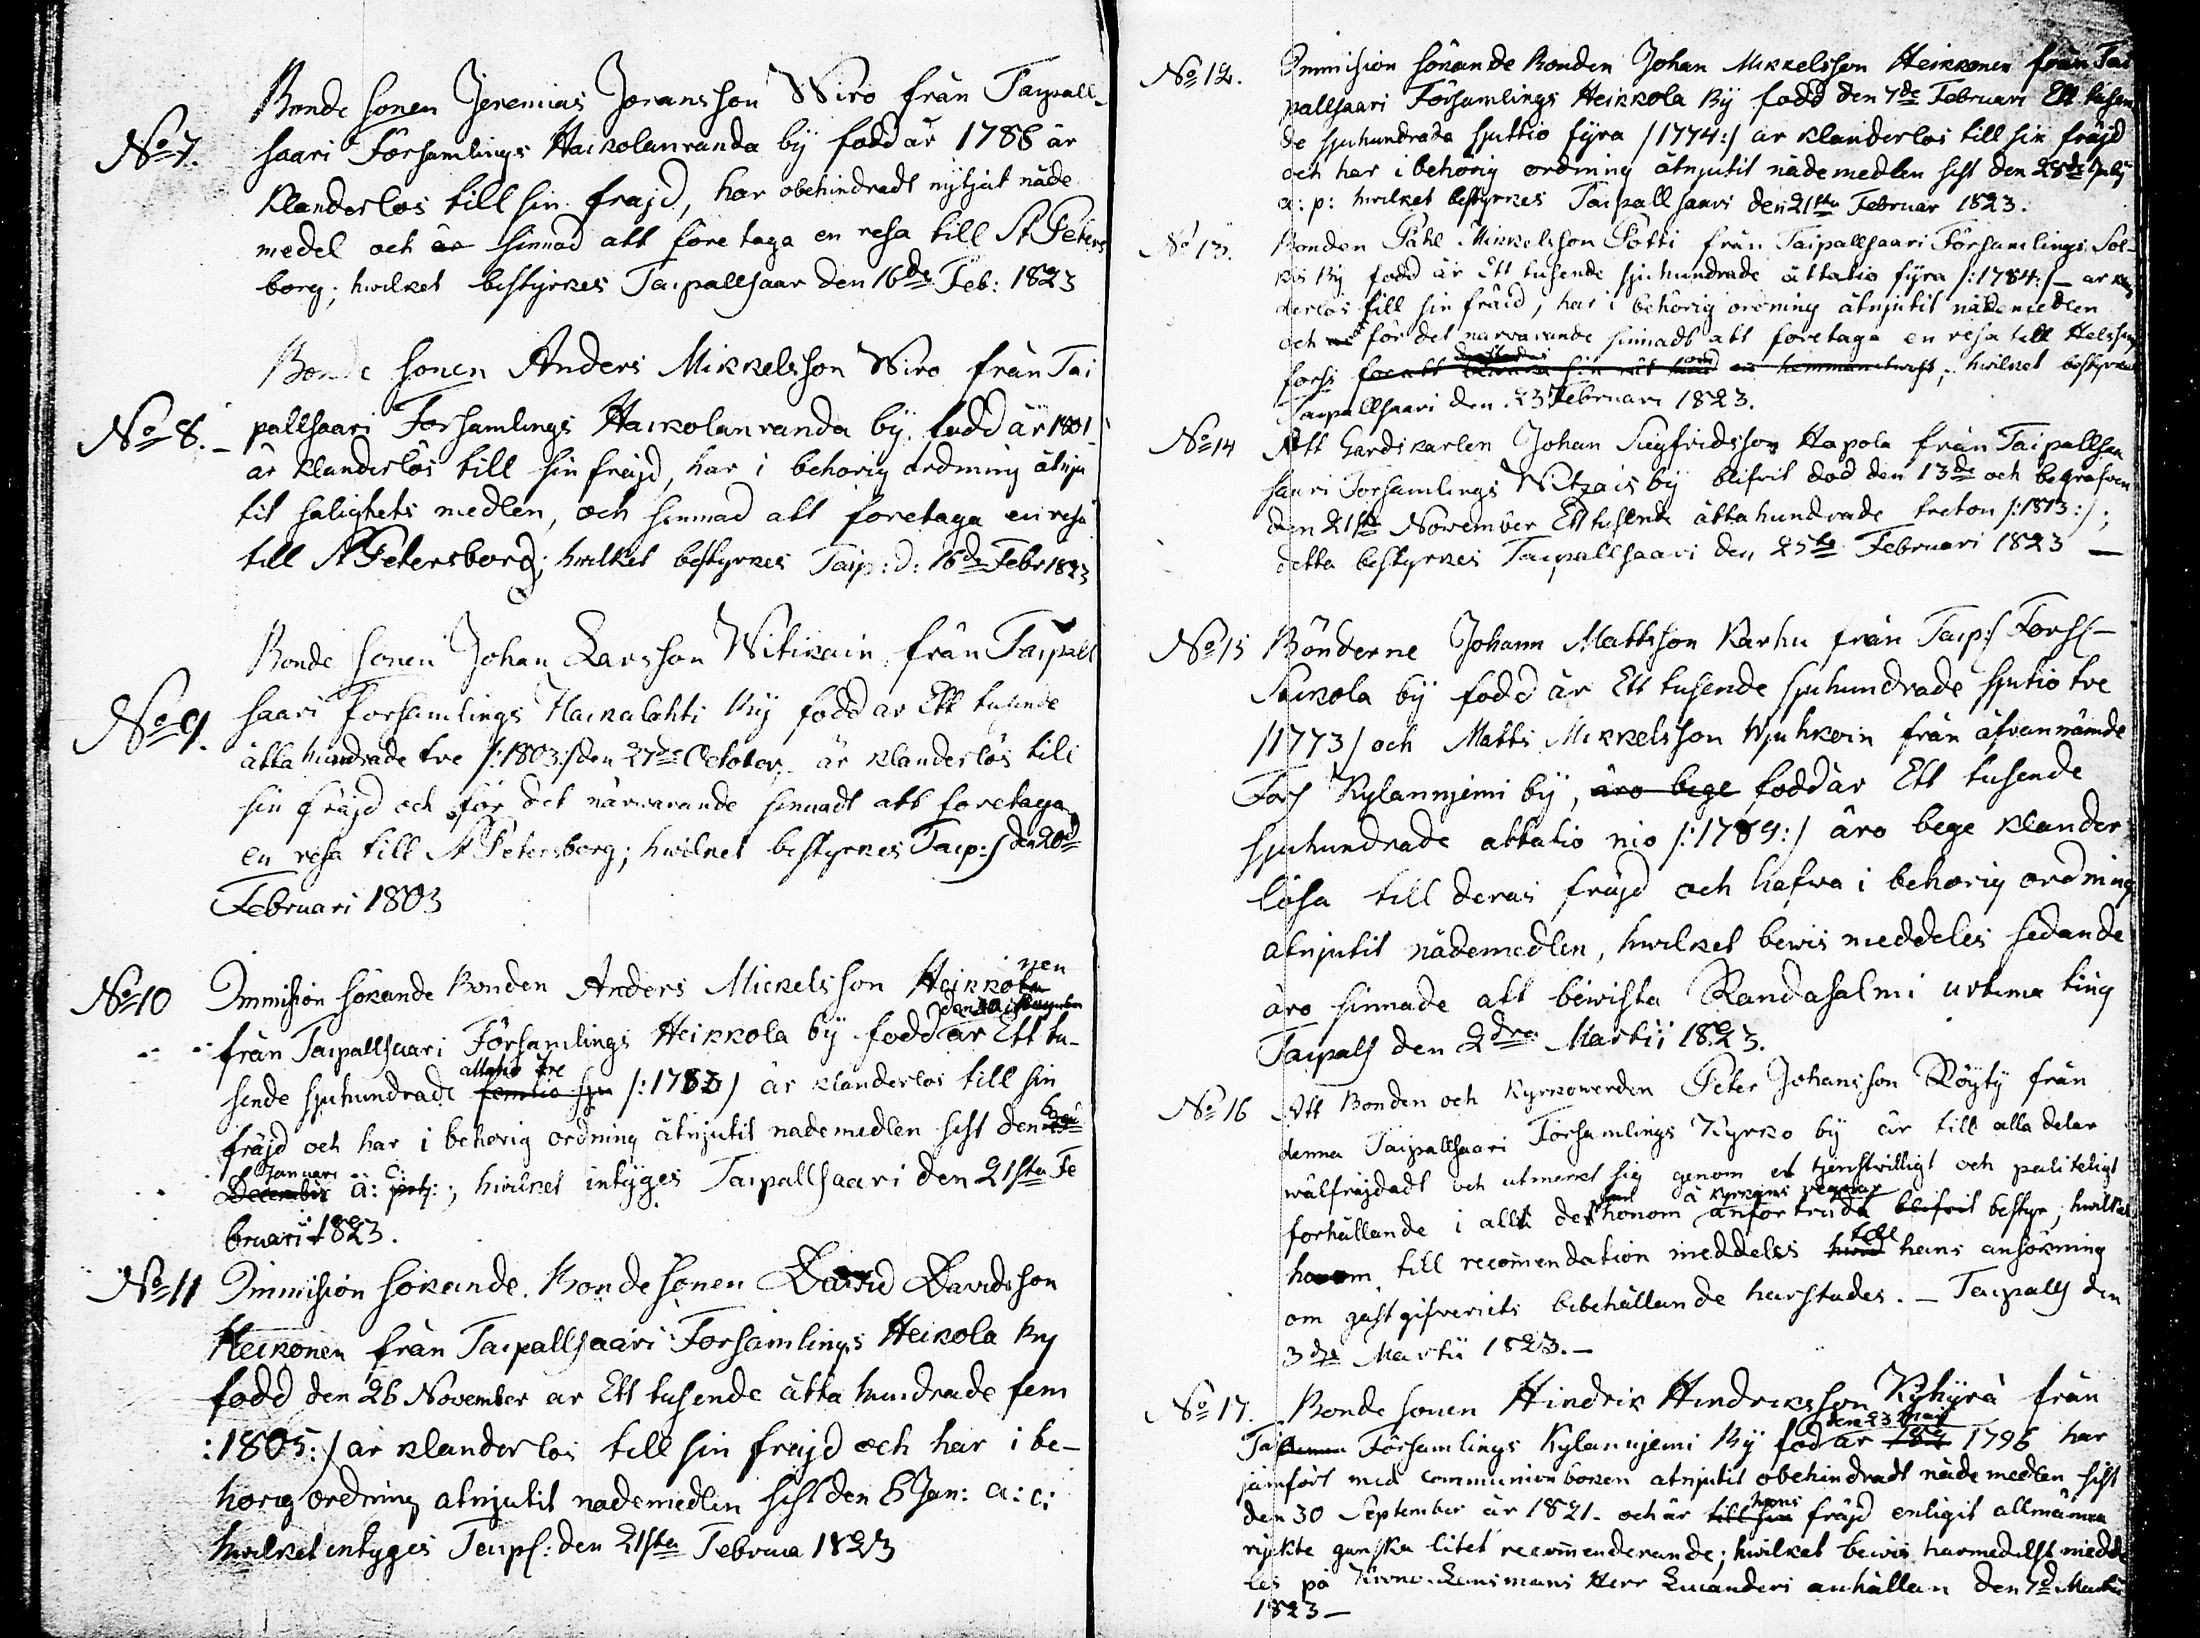 Bonde sonen Jeremias Joransson Wiro från Taipall-
No 7. saari Församlings Haikolanranda bÿ född år 1788 är
klanderlös till sin frajd, har obehindradt nÿtjat nåde
medel och är sinnad att företaga en resa till St Peters
borg; hwilket bestyrkes Taipallsaar den 16de Feb: 1823
Bonde sonen Anders Mikkelsson Wiro från Tai
No 8. – pallsaari Forsamlings Haikolanranda bÿ född år 1801
är klanderlös till sin fräjd, har i behörig ordning åtnju
tit salighets medlen, och sinnad att foretaga en resa
till St Petersborg; hwilket bestyrkes Taip: d: 16de Febr 1823
Bonde sonen Johan Larsson Witikain från Taipall
No 9. saari Forsamlings Haikalahti Bÿ född år Ett tusende
åtta hundrade tre /:1803:/ den 27de October är klanderlös till
sin fräjd och för det närwarande sinnadt att foretaga
en resa till St Petersborg; hwilket bestyrkes Taip:/ den 20de
Februari 1803
No 10 Immission sökande Bonden Anders Mickelsson Heikkola nen
från Taipallsaari Församlings Heikkola bÿ född år Ett tu-
sende sjuhundrade femtio sju åttatio tre /:1783/ är klanderlös till sin
fräjd och har i behörig ordning åtnjutit nademedlen sist den 6
December Januari a: c:; hwilket intÿges Taipallsaari den 21sta Fe
bruarii 1823.
No 11 Immission sökande Bonde sonen David Davidsson
Heikonen från Taipallsaari Forsamlings Heikola By
född den 26 November år Ett tusende åtta hundrade fem
:1805:/ är klanderlös till sin fräjd och har i be-
hörig ordning åtnjutit nademedlen sist den 6 Jan: a: c:
hwilket intyges Taips: den 21sta Februa 1823
No 12. Immission sökande Bonden Johan Mikkelsson Heikkonen från Tai
pallsaari Församlings Heikkola Bÿ född den 7de Februari Ett tusen
de sjuhundrade sjuttio fÿra /1774:/ är klanderlös till sin fräjd
och har i behörig ordning åtnjutit nådemedlen sist den 28de Julÿ
a: p: hwilket bestyrkes Taipallsaari den 21sta Februar 1823.
No 13. Bonden Påhl Mikkelsson Potti från Taipallsaari Församlings Sol-
kis Bÿ född år Ett tusende sjuhundrade åttatio fÿra /:1784:/ – är klan
derlös till sin fräid, har i behörig ordning åtnjutit nådemedlen
och för det narwarande sinnadt att foretaga en resa till Helsing
fors för att bewara sin rät; hwilket bestyrkes
Taipallsaari den 23 Februari 1823.
No 14 Att Gardiskarlen Johan Sigfridsson Hapola från Taipallsaa
saari Forsamlings Witzais bÿ blifvit död den 13de och begrafven
den 21sta November Ett tusende åtta hundrade tretton /:1813:/;
detta bestyrkes Taipallsaari den 25te Februari 1823 —
No 15 Bönderne Johann Mattsson Karhu från Taip:/ Fors/–
Saikola bÿ född år Ett tusende sjuhundrade sjutio tre
/1773/ och Matts Mikkelsson från åfvannämde
Fors Kylänniemi bÿ, äro bege född år Ett tusende
sjuhundrade attatio nio /:1789:/ äro bege klander
lösa till deras fräjd och hafwa i behorig ordning
atnjutit nådemedlen, hwilket bewis meddeles sedande
äro sinnade att bewista Randasalmi urtima ting
Taipals den 2dra Martii 1823.
No 16 Att Bonden och Kyrkowerden Peter Johansson Röÿtÿ från
denna Taipallsaari Församlings Kyrko bÿ är till alla delar
wälfräjdadt och utmerkt sig genom et tjenstwilligt och paliteligt
forhållande i allt det honom å kyrkans wegnar anförtrodt blifvit bestyr, hwilket
honom till recommendation meddeles hwad till hans ansökning
om gästgifveriets bibehållande harstades. – Taipals den
3dje Martii 1823. –
No 17. Bonde sonen Hindrik Hindriksson Kÿhÿrä från
Tai Församlings Kylänniemi Bÿ föd den 23 Maji år 1796 har
jämfört med communion boken atnjutit obehindradt nåde medlen sist
den 30 September år 1821. och är till sin hans fräjd enligit allmänna
rykte ganska litet recommenderande; hwilket bewis harmedelst medde
les på Krono Länsmans Herr Lucanders anhållan den 7de Martii
1823 –